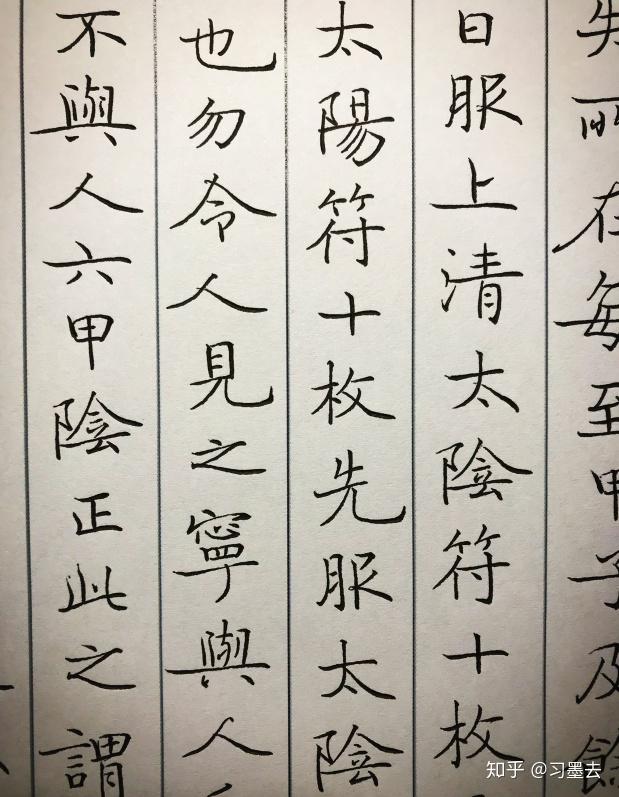 失所在每至甲子及餘
日服上清太陰符十枚
太陽符十枚先服太陰
也勿令人見之寧與人
不與人六甲陰正此之謂
知乎 @习墨去